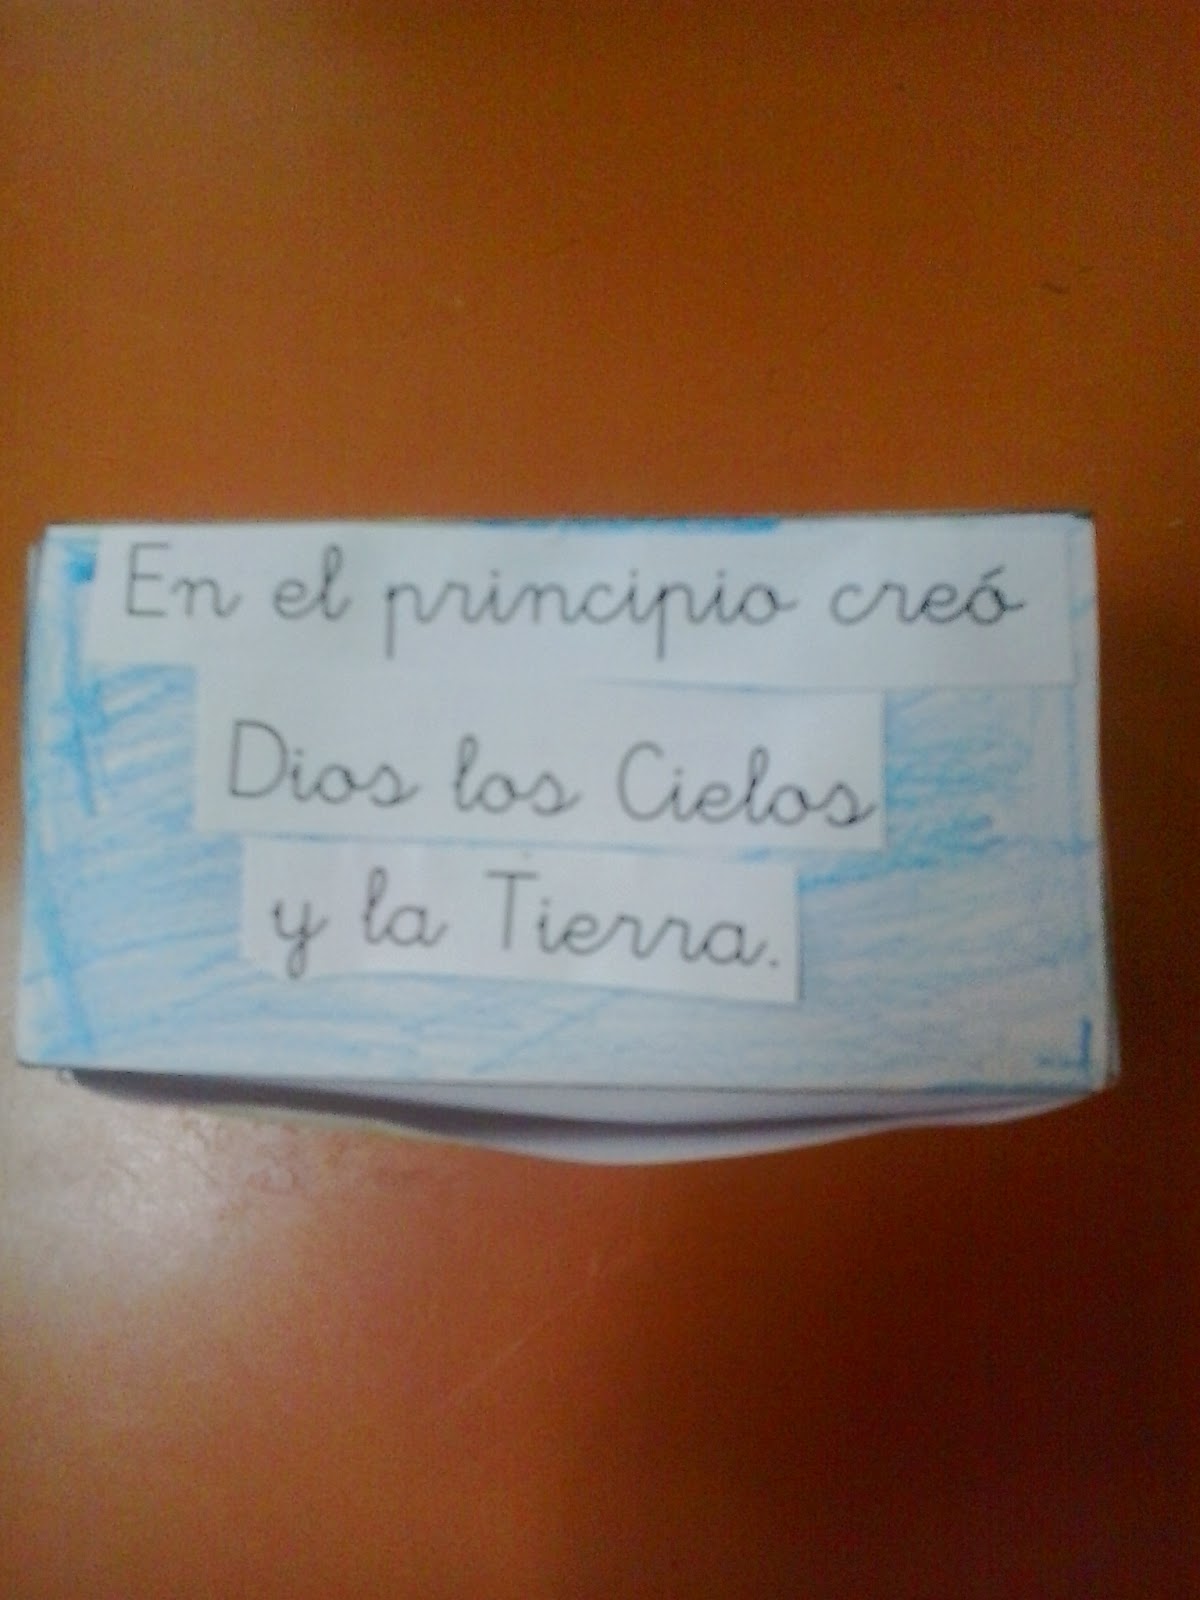 En el principio creó
Dios los Cielos
y la Tierra.